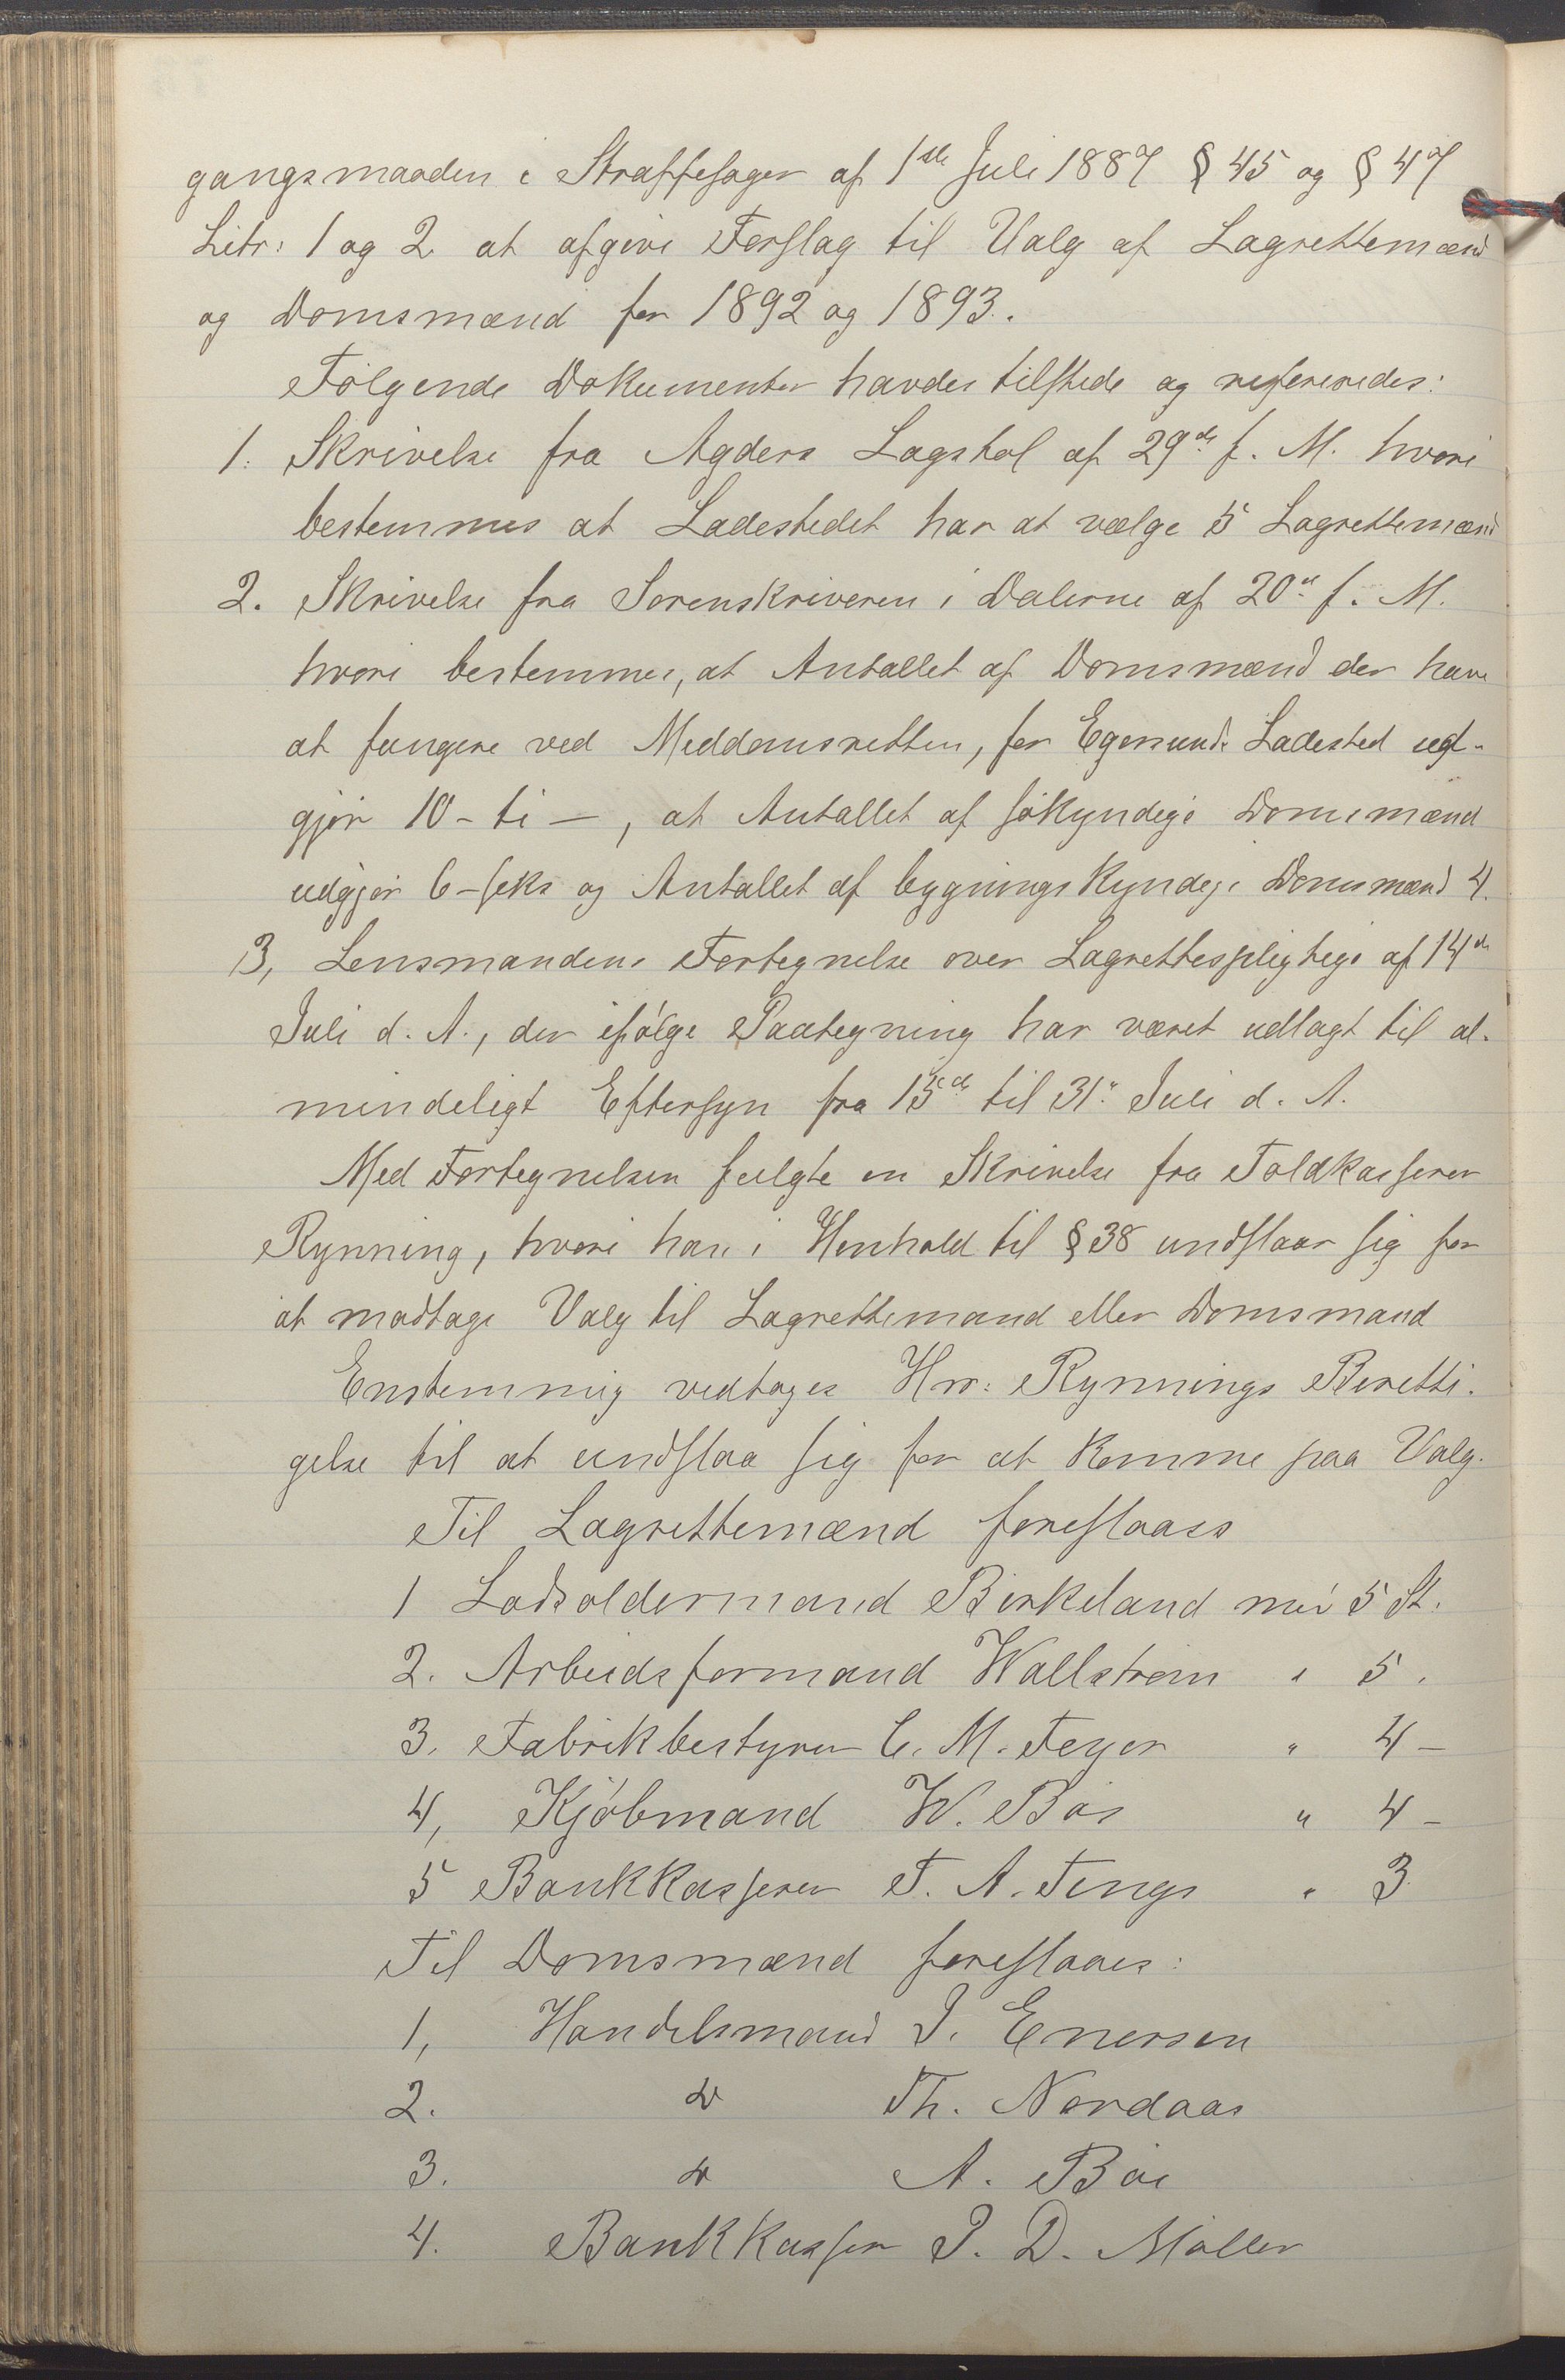 gangsmaaden i Straffesager af 1ste Juli 1887 § 45 og § 47
Litr: 1 og 2 at afgive Forslag til Valg af Lagrettemænd
og Domsmænd for 1892 og 1893.
Følgende Dokumenter havdes tilstede og refereredes:
1. Skrivelse fra Agders Lagstol af 29de f. M. hvori
bestemmes at Ladestedet har at vælge 5 Lagrettemænd
2. Skrivelse fra Sorenskriveren i Dalerne af 20de f. M.
hvori bestemmes, at Antallet af Domsmænd der have
at fungere ved Meddomsretten, for Egersunds Ladested ud-
gjør 10 - ti - , at Antallet af søkyndige Domsmænd
udgjør 6 - seks og Antallet af bygningskyndige Domsmænd 4.
3, Lensmandens Fortegnelse over Lagrettespligtige af 14de
Juli d. A., der ifølge Paategning har været udlagt til al-
mindeligt Eftersyn fra 15de til 31te Juli d. A.
Med Fortegnelsen fulgte en Skrivelse fra Toldkasserer
Rynning, hvori han i Henhold til § 38 undslaar sig for
at modtage Valg til Lagrettemand eller Domsmand
Enstemmig vedtoges Hrr: Rynnings Beretti-
gelse til at undslaa sig for at komme paa Valg.
Til Lagrettemænd foreslaaes
1 Lodsoldermand Birkeland med 5 St.
2. Arbeidsformand Wallstrøm " 5 .
3. Fabrikbestyrer C. M. Feyer " 4 -
4, Kjøbmand W. Bøe " 4 -
5 Bankkasserer T. A. Tengs " 3.
Til Domsmænd foreslaaes:
1, Handelsmand J. Enersen
2. do Th. Nordaas
3. do A. Bøe
4. Bankkasser J. D. Møller